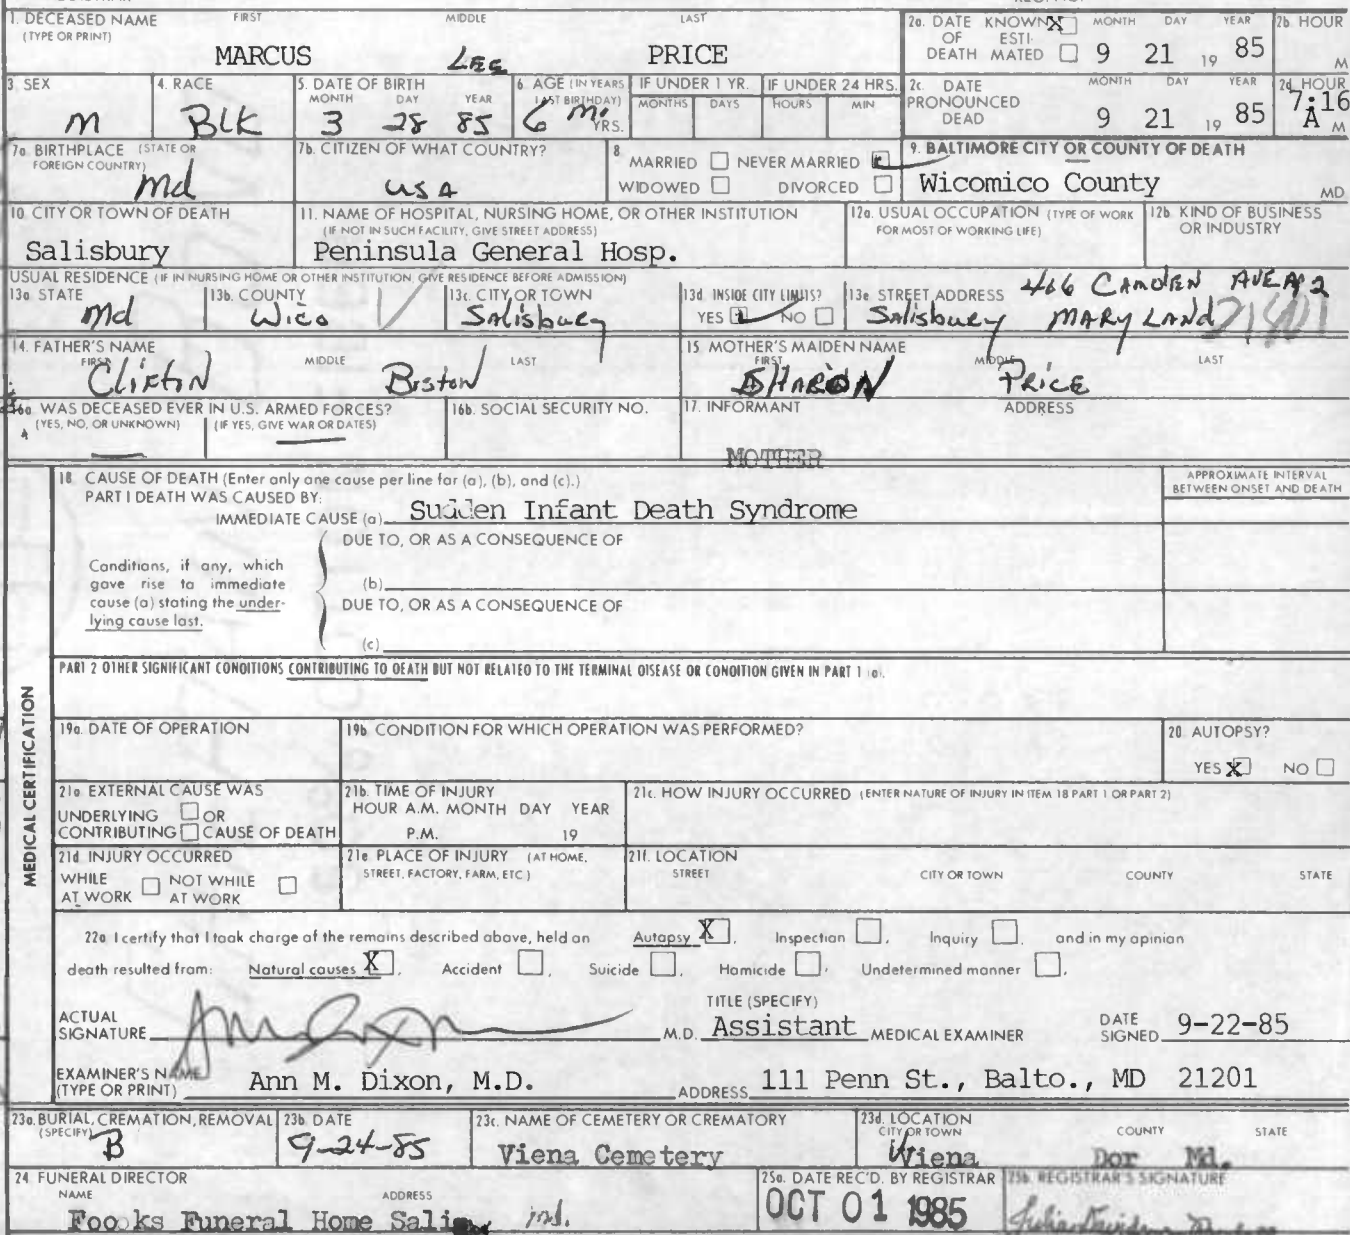 1. DECEASED NAME FIRST MIDDLE LAST
(TYPE OR PRINT)
MARCUS Lee PRICE
2a. DATE OF DEATH KNOWN X ESTIMATED MONTH DAY YEAR
9 21 19 85
2b. HOUR
M
3 SEX
M
4. RACE
BLK
5. DATE OF BIRTH
MONTH DAY YEAR
3 28 85
6. AGE (IN YEARS LAST BIRTHDAY)
6 Mo. YRS.
IF UNDER 1 YR.
MONTHS DAYS
IF UNDER 24 HRS.
HOURS MIN
2c. DATE PRONOUNCED DEAD MONTH DAY YEAR
9 21 19 85
2d. HOUR
7:16
A M
7a. BIRTHPLACE (STATE OR FOREIGN COUNTRY)
Md
7b. CITIZEN OF WHAT COUNTRY?
USA
8
MARRIED NEVER MARRIED
WIDOWED DIVORCED
9. BALTIMORE CITY OR COUNTY OF DEATH
Wicomico County MD
10 CITY OR TOWN OF DEATH
Salisbury
11. NAME OF HOSPITAL, NURSING HOME, OR OTHER INSTITUTION
(IF NOT IN SUCH FACILITY, GIVE STREET ADDRESS)
Peninsula General Hosp.
12a. USUAL OCCUPATION (TYPE OF WORK FOR MOST OF WORKING LIFE)
12b. KIND OF BUSINESS OR INDUSTRY
USUAL RESIDENCE (IF IN NURSING HOME OR OTHER INSTITUTION, GIVE RESIDENCE BEFORE ADMISSION)
13a STATE
Md
13b. COUNTY
Wico
13c. CITY OR TOWN
Salisbury
13d. INSIDE CITY LIMITS?
YES NO
13e STREET ADDRESS 466 CAMDEN AVE
Salisbury MARYLAND 21801
14. FATHER'S NAME
FIRST MIDDLE LAST
Clifton
15. MOTHER'S MAIDEN NAME
FIRST MIDDLE LAST
SHARON PRICE
16a. WAS DECEASED EVER IN U.S. ARMED FORCES?
(YES, NO, OR UNKNOWN) (IF YES, GIVE WAR OR DATES)
16b. SOCIAL SECURITY NO.
17. INFORMANT ADDRESS
MOTHER
MEDICAL CERTIFICATION
18 CAUSE OF DEATH (Enter only one cause per line for (a), (b), and (c).)
PART I DEATH WAS CAUSED BY:
IMMEDIATE CAUSE (a) Sudden Infant Death Syndrome
APPROXIMATE INTERVAL
BETWEEN ONSET AND DEATH
DUE TO, OR AS A CONSEQUENCE OF
Conditions, if any, which
gave rise to immediate
cause (a) stating the under-
lying cause last.
(b)
DUE TO, OR AS A CONSEQUENCE OF
(c)
PART 2 OTHER SIGNIFICANT CONDITIONS CONTRIBUTING TO DEATH BUT NOT RELATED TO THE TERMINAL DISEASE OR CONDITION GIVEN IN PART 1 (a).
19a. DATE OF OPERATION
19b. CONDITION FOR WHICH OPERATION WAS PERFORMED?
20. AUTOPSY?
YES X NO
21a EXTERNAL CAUSE WAS
UNDERLYING OR
CONTRIBUTING CAUSE OF DEATH
21b. TIME OF INJURY
HOUR A.M. MONTH DAY YEAR
P.M. 19
21c. HOW INJURY OCCURRED (ENTER NATURE OF INJURY IN ITEM 18 PART 1 OR PART 2)
21d INJURY OCCURRED
WHILE AT WORK NOT WHILE AT WORK
21e PLACE OF INJURY (AT HOME, STREET, FACTORY, FARM, ETC.)
21f. LOCATION
STREET CITY OR TOWN COUNTY STATE
22a I certify that I took charge of the remains described above, held an Autopsy X, Inspection , Inquiry , and in my opinion
death resulted from: Natural causes X, Accident , Suicide , Homicide , Undetermined manner .
ACTUAL SIGNATURE M.D.
TITLE (SPECIFY)
Assistant MEDICAL EXAMINER
DATE SIGNED 9-22-85
EXAMINER'S NAME (TYPE OR PRINT) Ann M. Dixon, M.D. ADDRESS 111 Penn St., Balto., MD 21201
23a. BURIAL, CREMATION, REMOVAL (SPECIFY)
B
23b. DATE
9-24-85
23c. NAME OF CEMETERY OR CREMATORY
Viena Cemetery
23d. LOCATION
CITY OR TOWN COUNTY STATE
Viena Dor Md.
24. FUNERAL DIRECTOR
NAME ADDRESS
Funeral Home md.
25a. DATE REC'D. BY REGISTRAR
OCT 01 1985
25b. REGISTRAR'S SIGNATURE